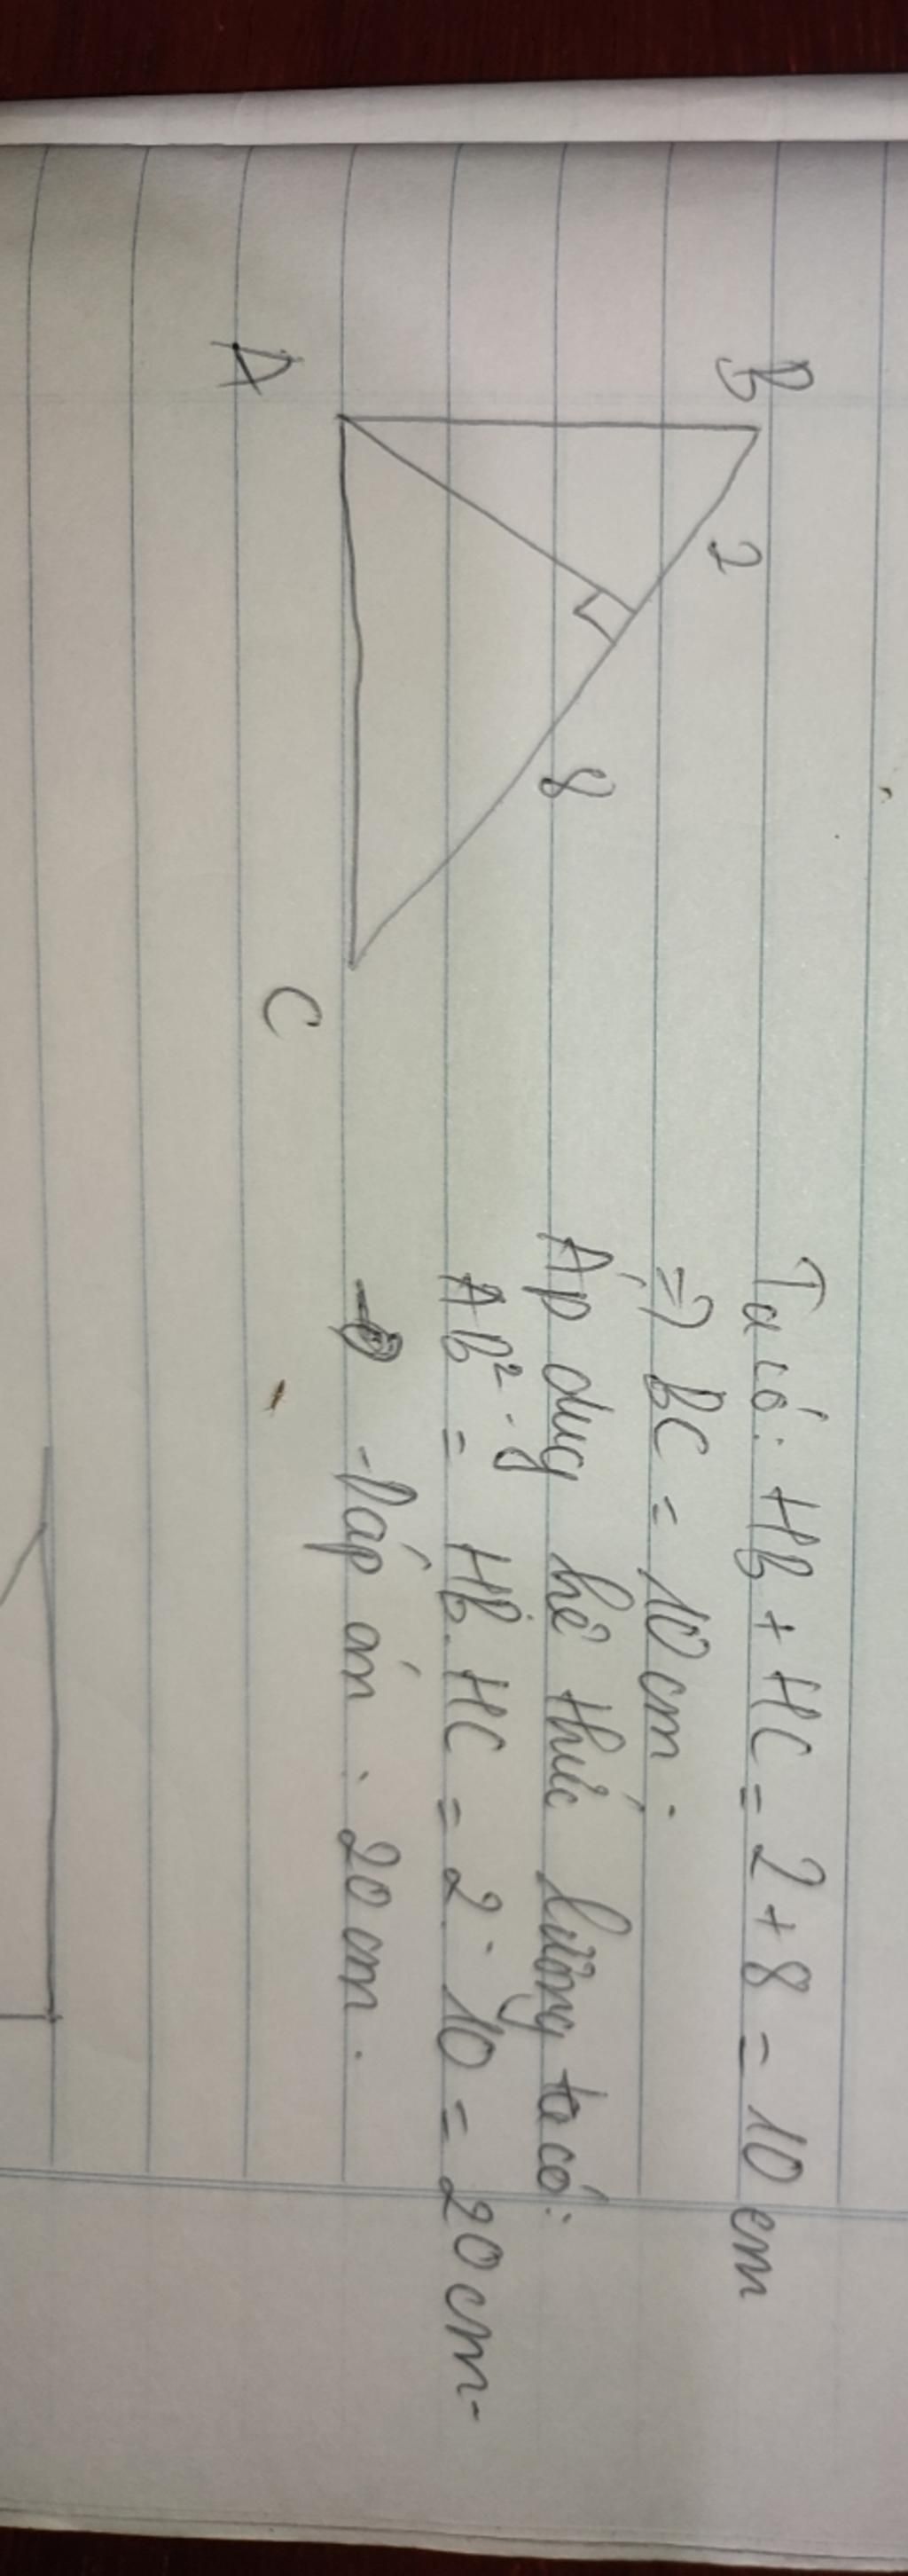 B
2
8
A
C
Ta có: HB + HC = 2 + 8 = 10 cm
=> BC = 10 cm.
Áp dug hê thức lường ta có:
AB² = HB. HC = 2. 10 = 20 cm.
Đáp án. 20 cm.